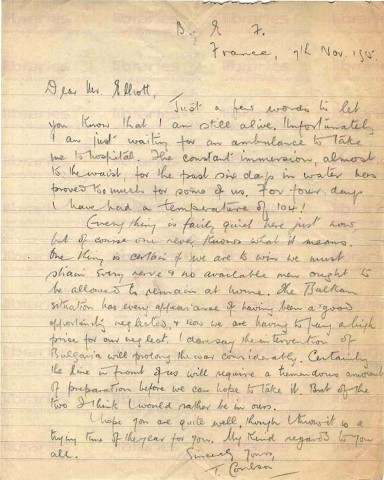 B. E. F.
France, 7th Nov. 1915.
Dear Mr. Elliott,
Just a few words to let
you know that I am still alive. Unfortunately
I am just waiting for an ambulance to take
me to hospital. The constant immersion, almost
to the waist, for the past six days in water has
proved too much for some of us. For four days
I have had a temperature of 104!
Everything is fairly quiet here just now,
but of course one never knows what it means.
One thing is certain if we are to win we must
strain every nerve & no available men ought to
be allowed to remain at home. The Balkan
situation has every appearance of having been a good
opportunity neglected, & now we are having to pay a high
price for our neglect. I daresay the intervention of
Bulgaria will prolong the war considerably. Certainly
the line in front of us will require a tremendous amount
of preparation before we can hope to take it. But of the
two I think I would rather be in ours.
I hope you are quite well, though I know it is a
trying time of the year for you. My kind regards to you
all.
Sincerely Yours,
T. Coulson